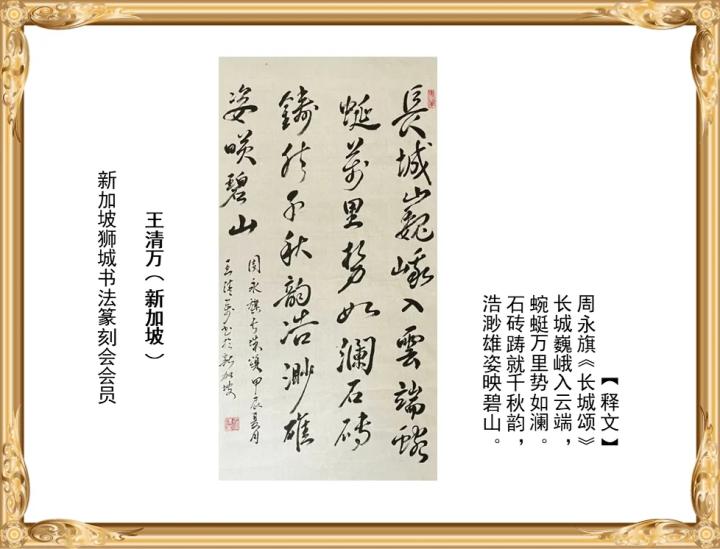 【释文】
周永旗《长城颂》
长城巍峨入云端，
蜿蜓万里势如澜。
石砖踌就千秋韵，
浩渺雄姿映碧山。
長城巍峨入雲端蜿
蜒萬里势如瀾石磚
鑄就千秋韵浩渺雄
姿映碧山
周永旗长城颂甲辰夏月
王清万书于新加坡
王清万（新加坡）
新加坡狮城书法篆刻会会员